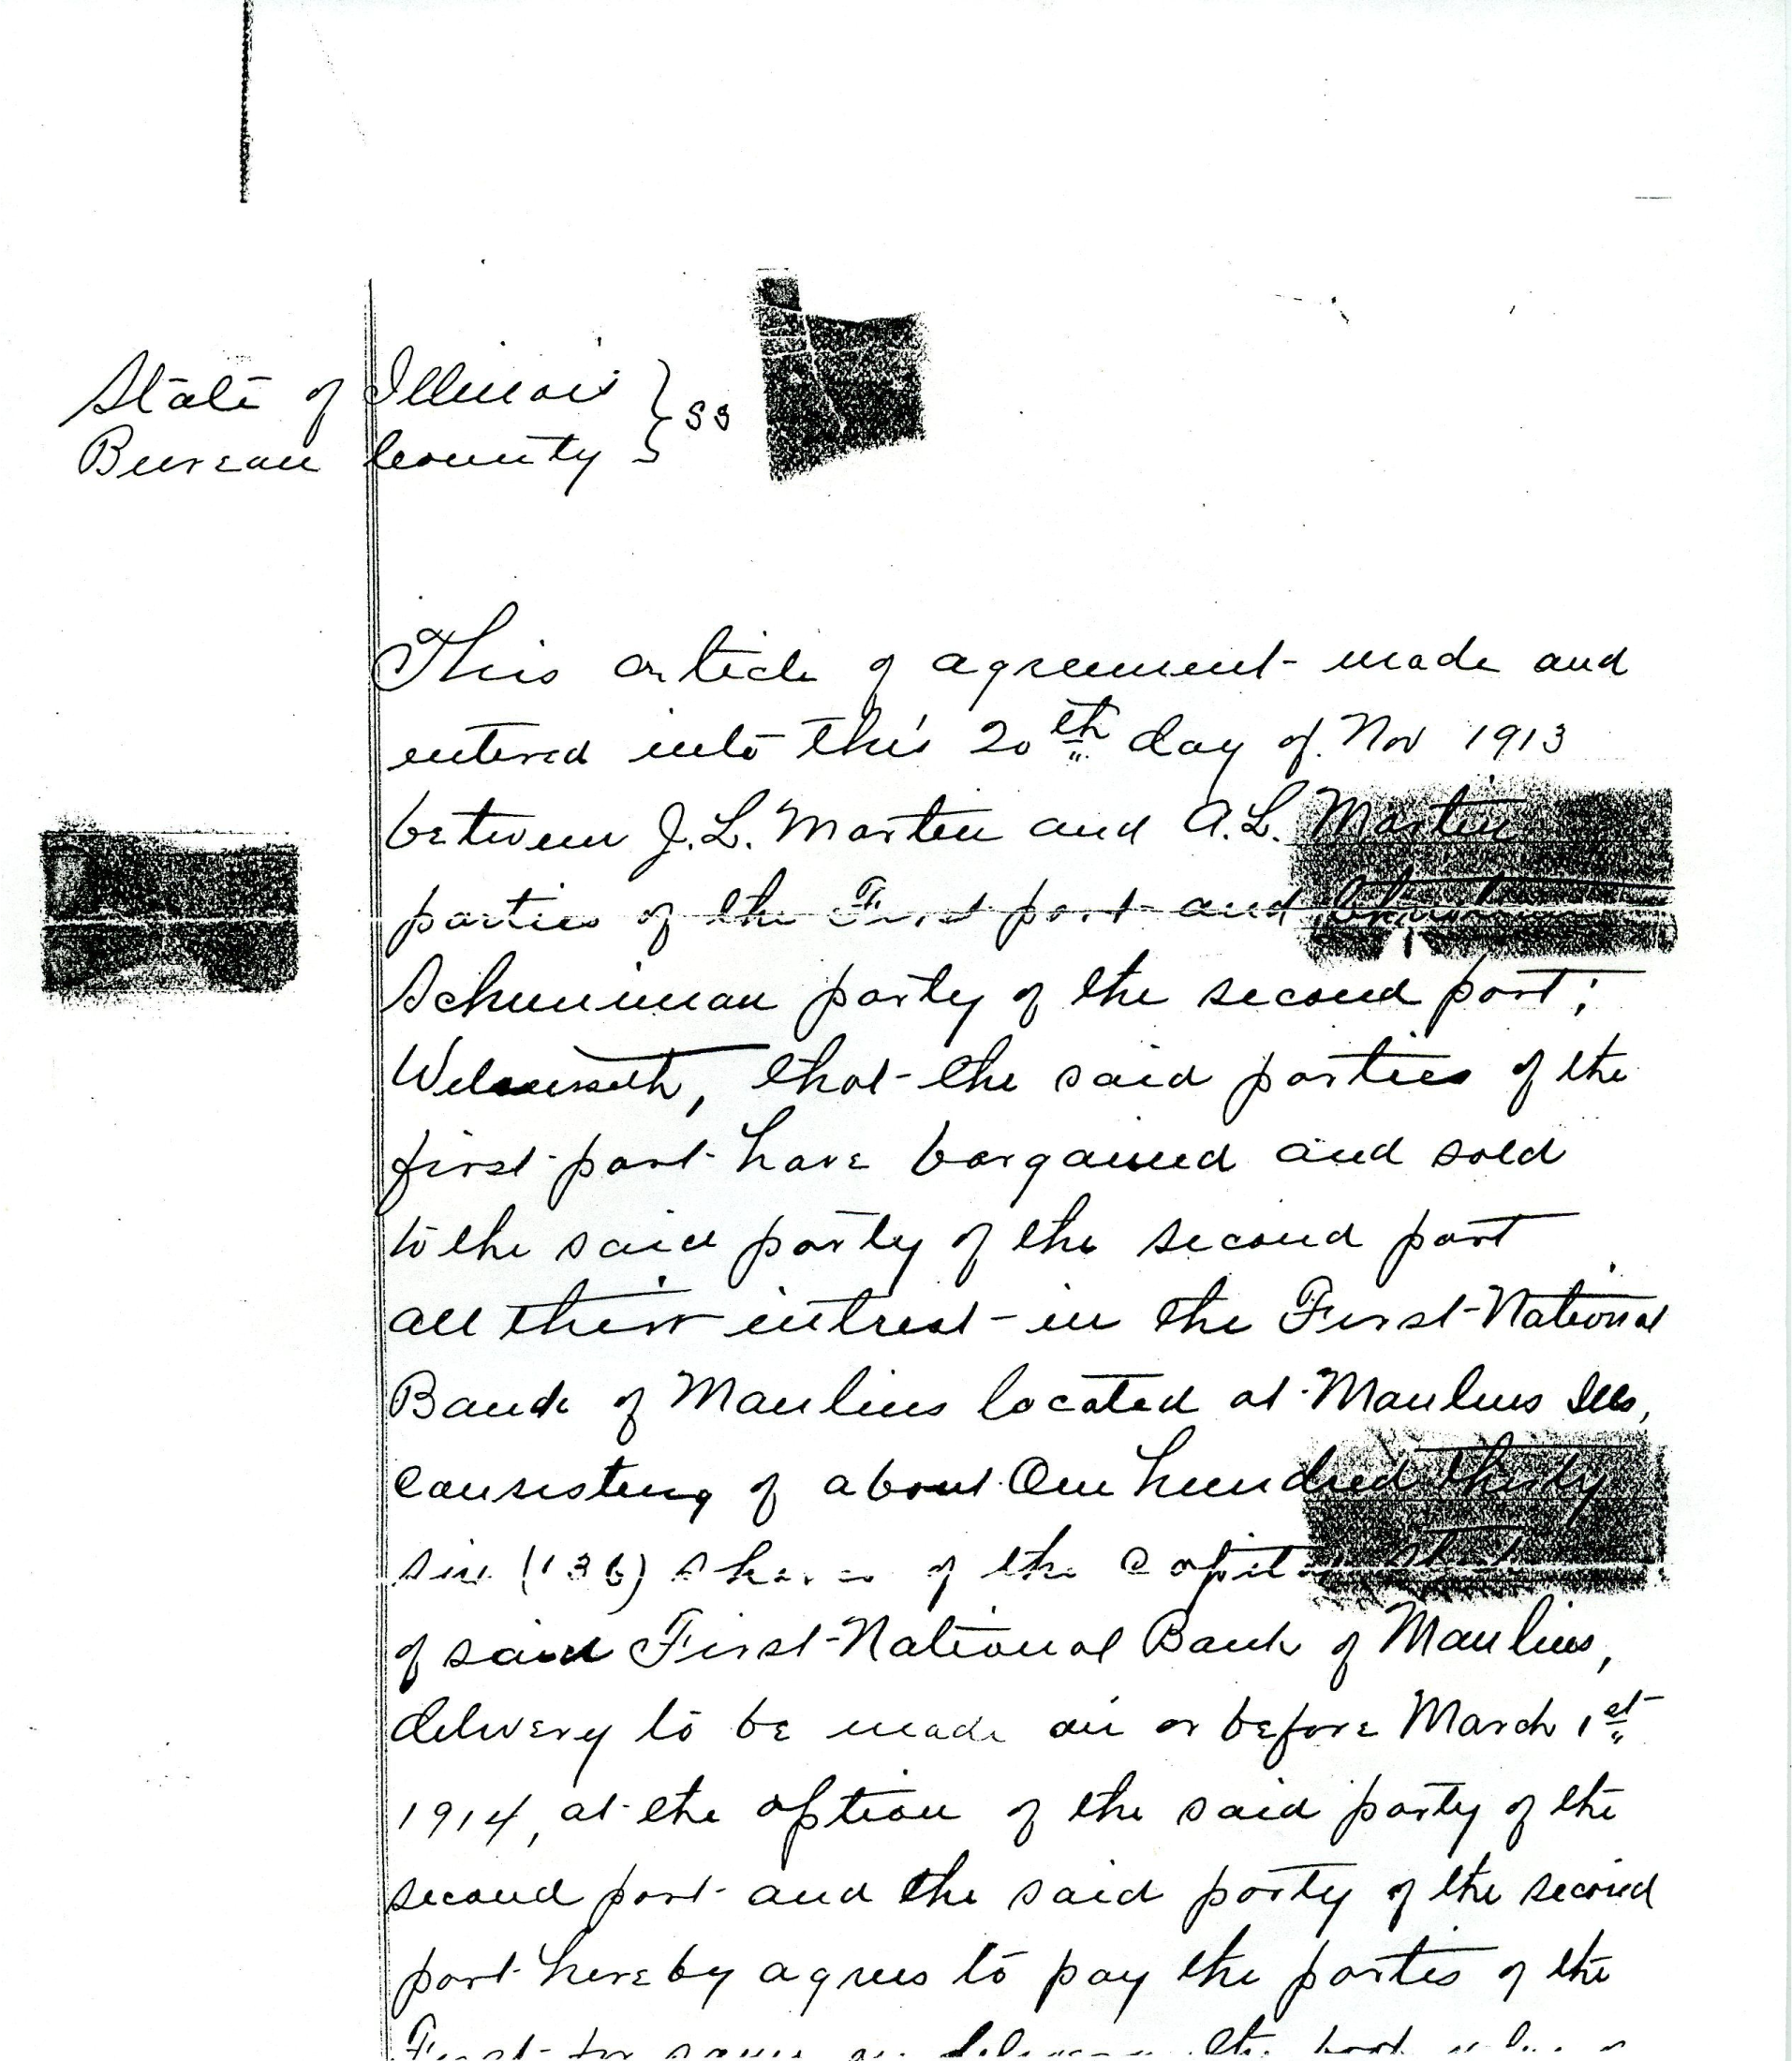 State of Illinois } ss
Bureau County
This article of agreement made and
entered into this 20th day of Nov 1913
between J.L. Martin and A.L. Martin
parties of the First part and
Schuniman party of the second part;
that the said parties of the
first part have bargained and sold
to the said party of the second part
all their intrest in the First National
Bank of Manlius located at Manlius Ills,
Consisting of about One hundred thirty
six (136) shares of the Capital Stock
of said First National Bank of Manlius,
delivery to be made on or before March 1st
1914, at the option of the said party of the
second part and the said party of the second
part hereby agrees to pay the parties of the
First for same on delivery the book value